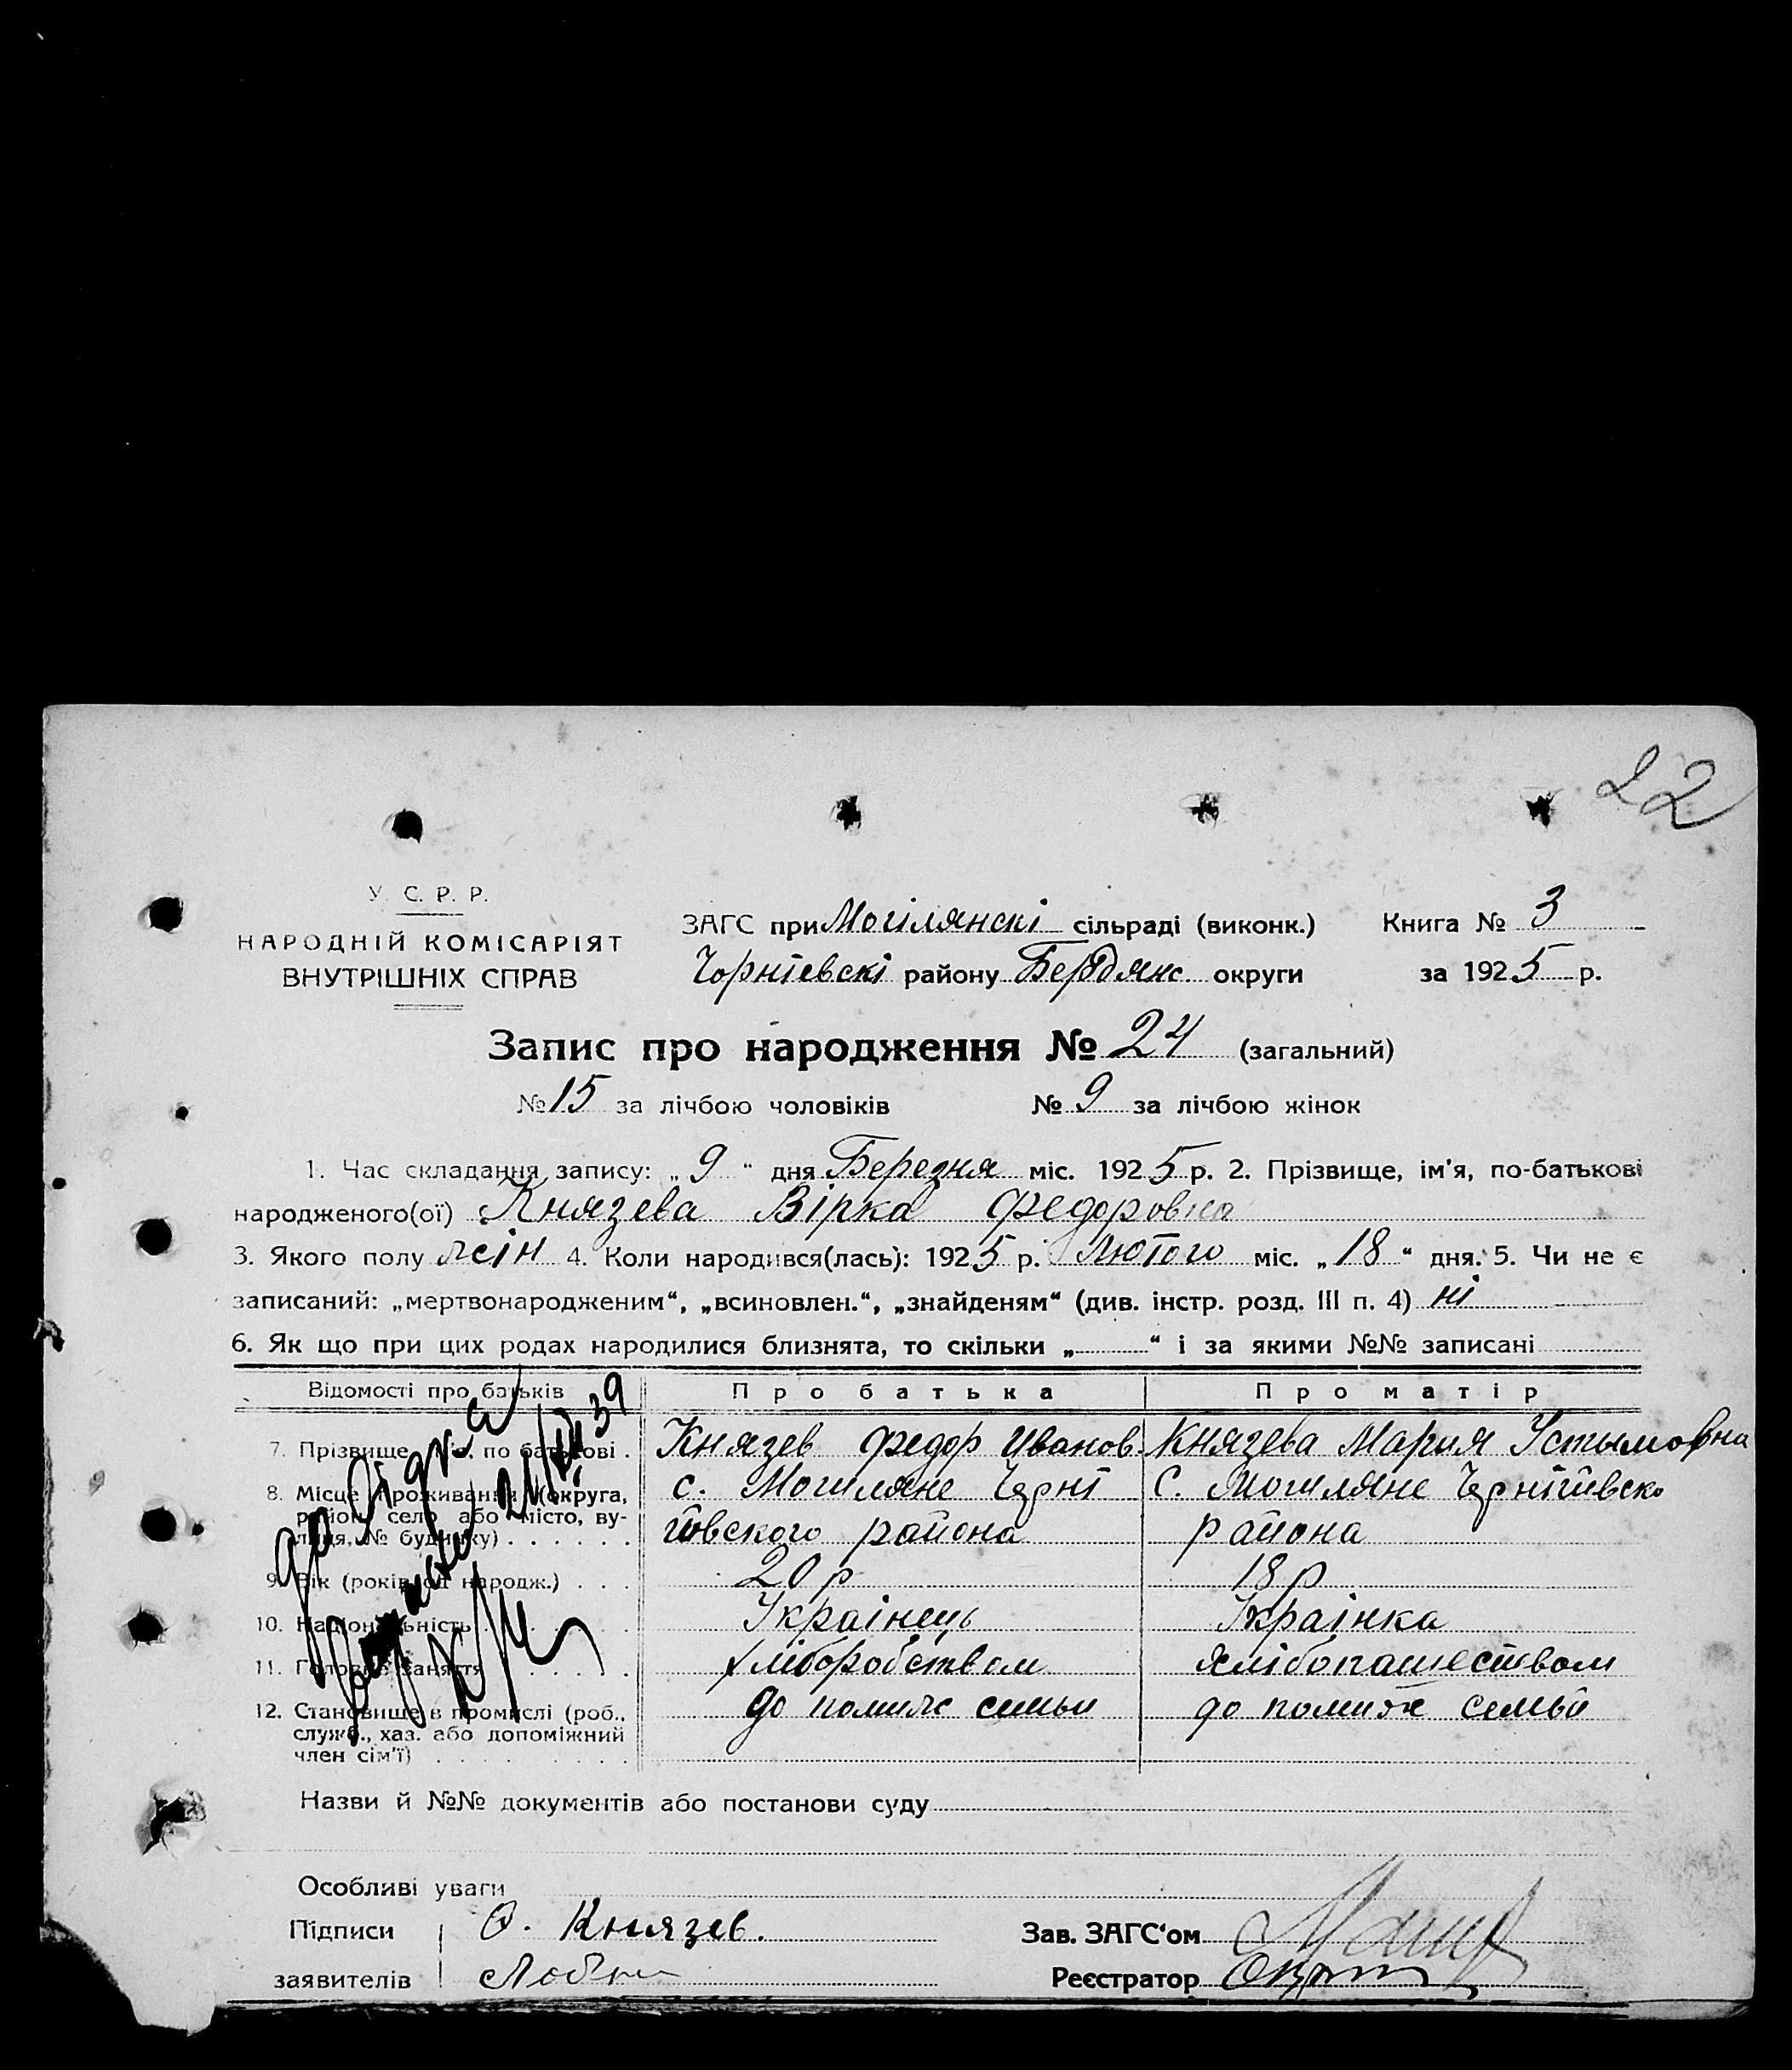 22
У. С. Р. Р.
НАРОДНІЙ КОМІСАРІЯТ
ВНУТРІШНІХ СПРАВ
ЗАГС при Могілянскі сільраді (виконк.) Книга № 3
Чорнігевскі району Бердянс. округи за 1925 р.
Запис про народження № 24 (загальний)
№ 15 за лічбою чоловіків № 9 за лічбою жінок
1. Час складання запису: „9“ дня Березня міс. 1925 р. 2. Прізвище, ім'я, по-батькові
народженого(ої) Князева Вірка Федоровна
3. Якого полу жін 4. Коли народився(лась): 1925 р. Лютого міс. „18“ дня. 5. Чи не є
записаний: „мертвонародженим“, „всиновлен.“, „знайденям“ (див. інстр. розд. III п. 4) ні
6. Як що при цих родах народилися близнята, то скільки „ “ і за якими №№ записані
Відомості про батьків Про батька Про матір
7. Прізвище, ім'я, по батькові . Князев Федор Иванов. Князева Мария Устымовна
8. Місце проживання (округа, район, село або місто, вулиця, № будинку) . . . . . . с. Могиляне Черні
говского района С. Могиляне Чернігивско
района
9. Вік (років од народж.) . . . 20 р 18 р
10. Національність . . . . Українець Українка
11. Головне заняття . . . . . Хліборобством Хлібопашеством
12. Становище в промислі (роб., служб., хаз. або допоміжний член сім'ї) . . . . . . . до помилс симьи до помилс семьи
39
Назви й №№ документів або постанови суду
Особливі уваги
Підписи Ф. Князев. Зав. ЗАГС'ом
заявителів Реєстратор